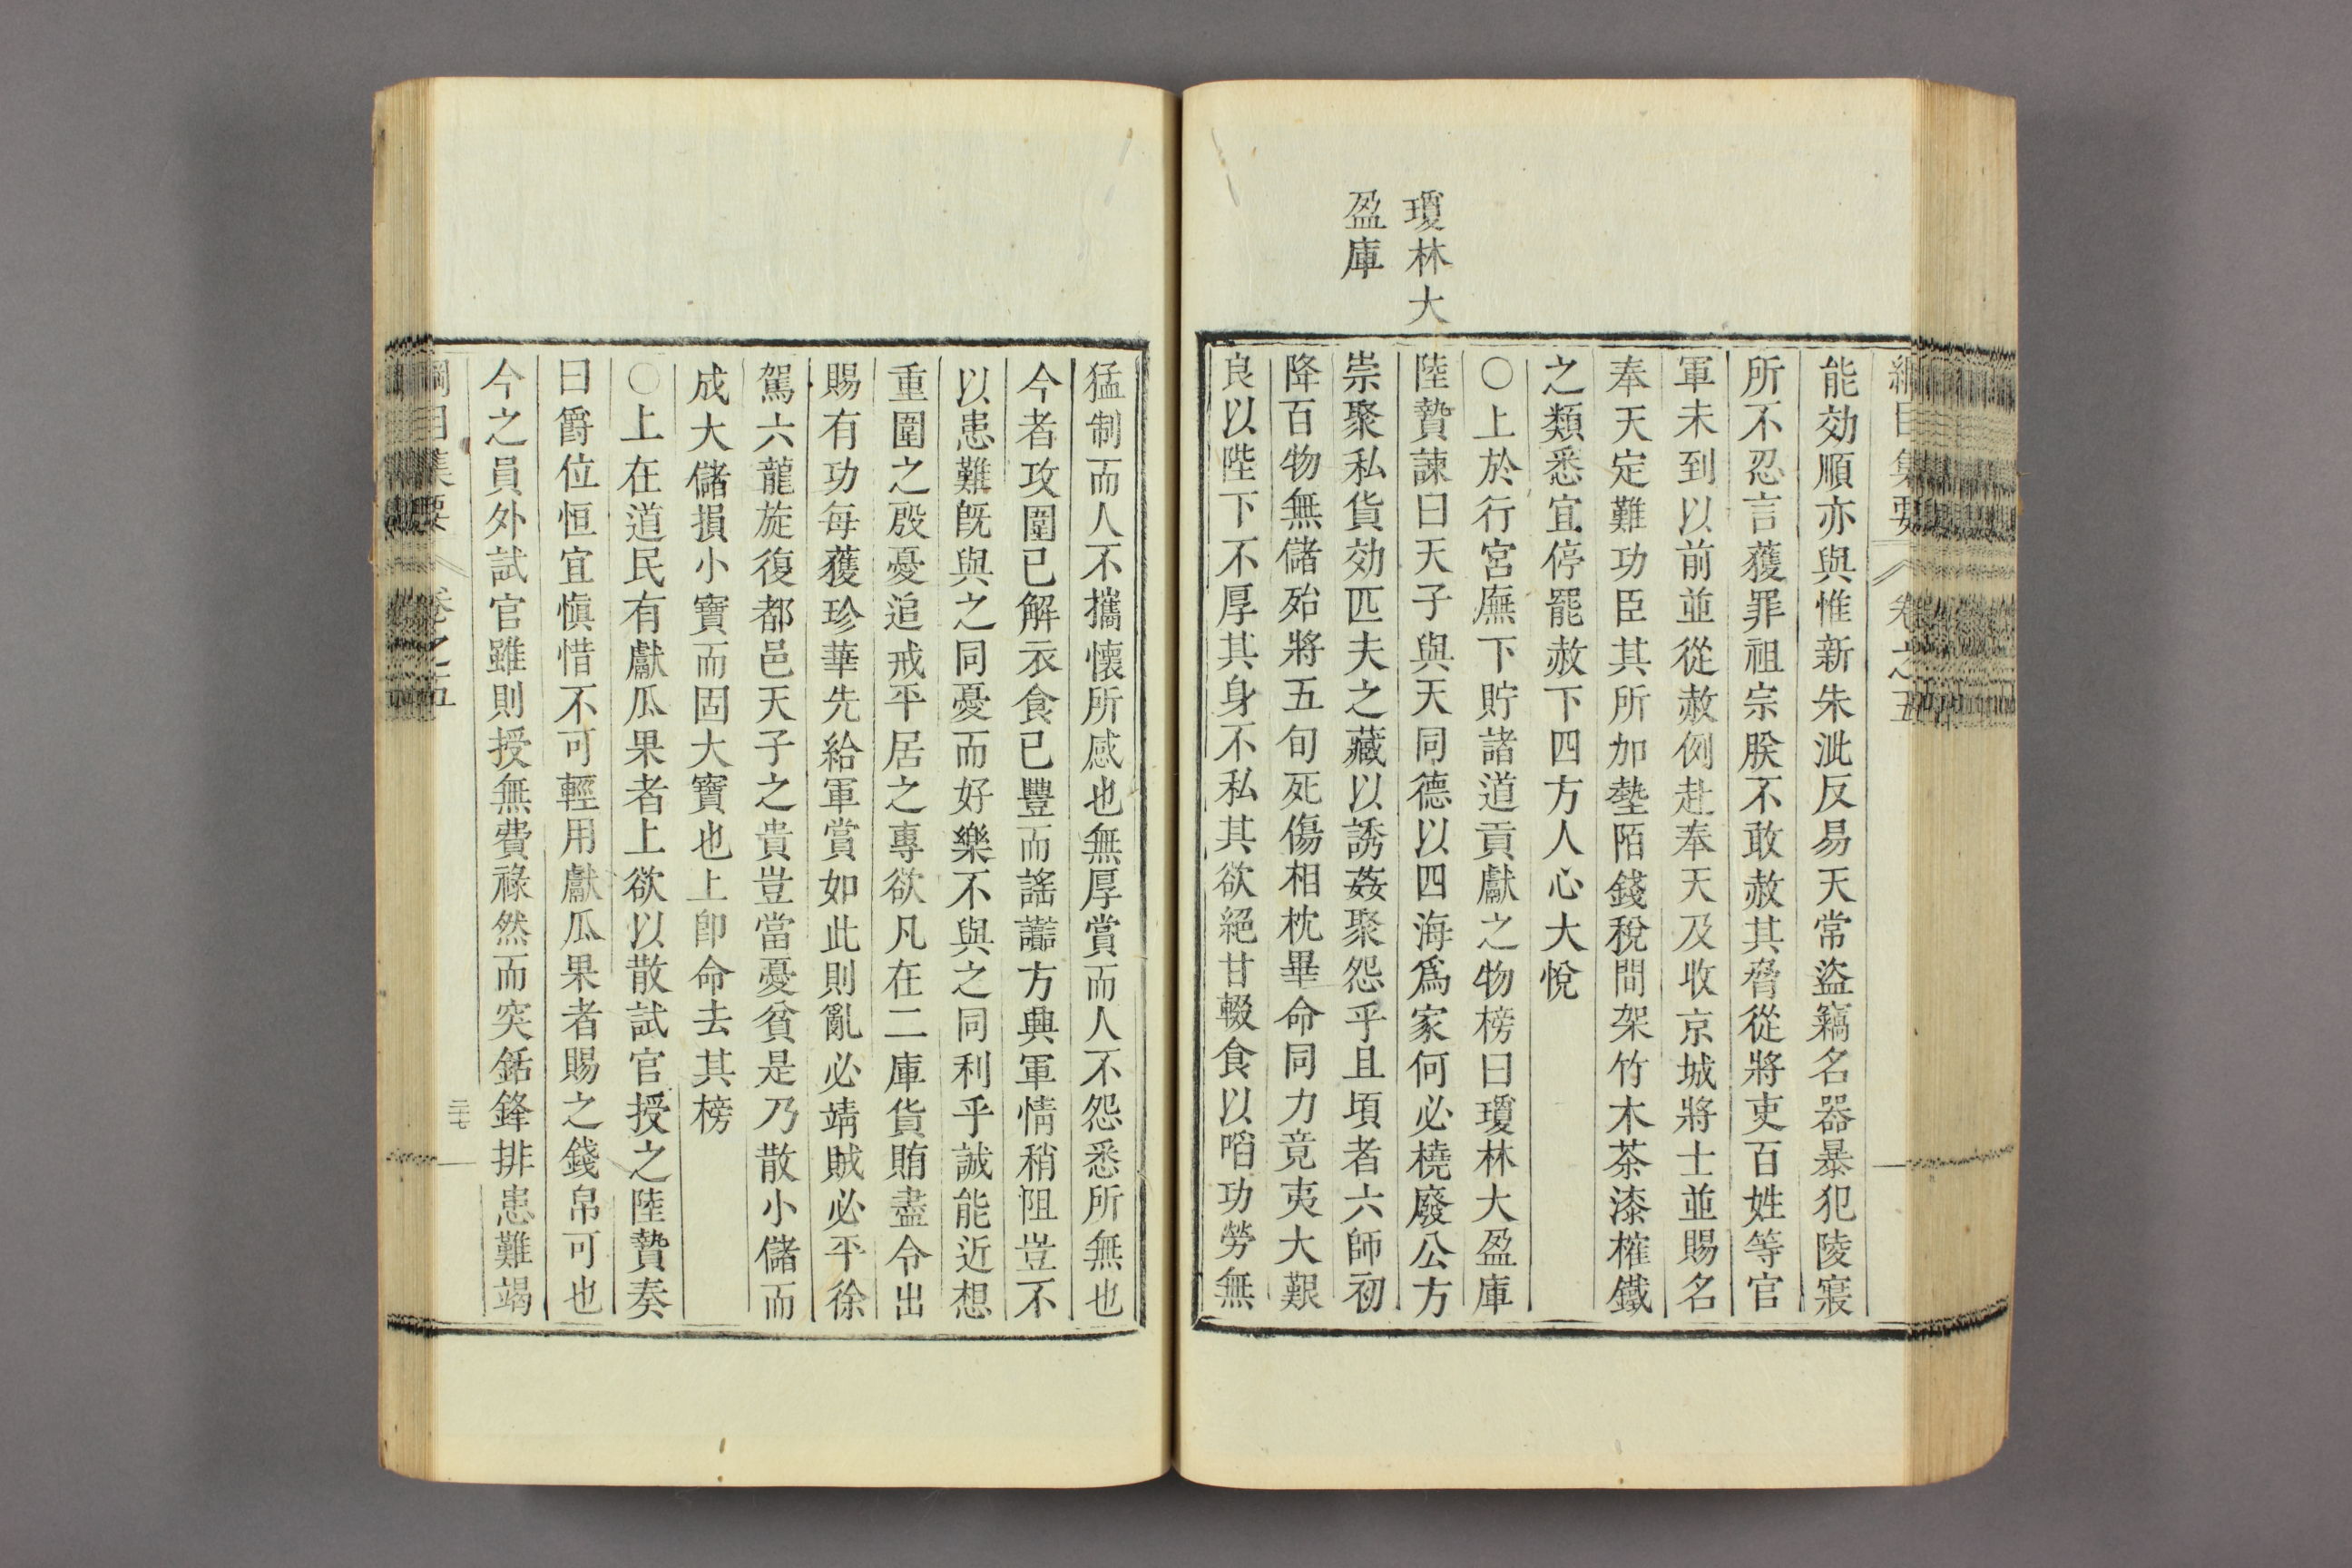 綱目集要 卷之五
能効順亦與惟新朱泚反易天常盜竊名器暴犯陵寢
所不忍言獲罪祖宗朕不敢赦其脅從將吏百姓等官
軍未到以前並從赦例赴奉天及收京城將士並賜名
奉天定難功臣其所加墊陌錢稅間架竹木茶漆榷鐵
之類悉宜停罷赦下四方人心大悅
○上於行宮廡下貯諸道貢獻之物榜曰瓊林大盈庫
瓊林大
盈庫
陸贄諫曰天子與天同德以四海爲家何必橈廢公方
崇聚私貨効匹夫之藏以誘姦聚怨乎且頃者六師初
降百物無儲殆將五旬死傷相枕畢命同力竟夷大艱
良以陛下不厚其身不私其欲絕甘輟食以啗功勞無
猛制而人不攜懷所感也無厚賞而人不怨悉所無也
今者攻圍已解衣食已豐而謠讟方興軍情稍阻豈不
以患難旣與之同憂而好樂不與之同利乎誠能近想
重圍之殷憂追戒平居之專欲凡在二庫貨賄盡令出
賜有功每獲珍華先給軍賞如此則亂必靖賊必平徐
駕六龍旋復都邑天子之貴豈當憂貧是乃散小儲而
成大儲損小寶而固大寶也上卽命去其榜
○上在道民有獻瓜果者上欲以散試官授之陸贄奏
曰爵位恒宜愼惜不可輕用獻瓜果者賜之錢帛可也
今之員外試官雖則授無費祿然而突銛鋒排患難竭
綱目集要 卷之五 三十七